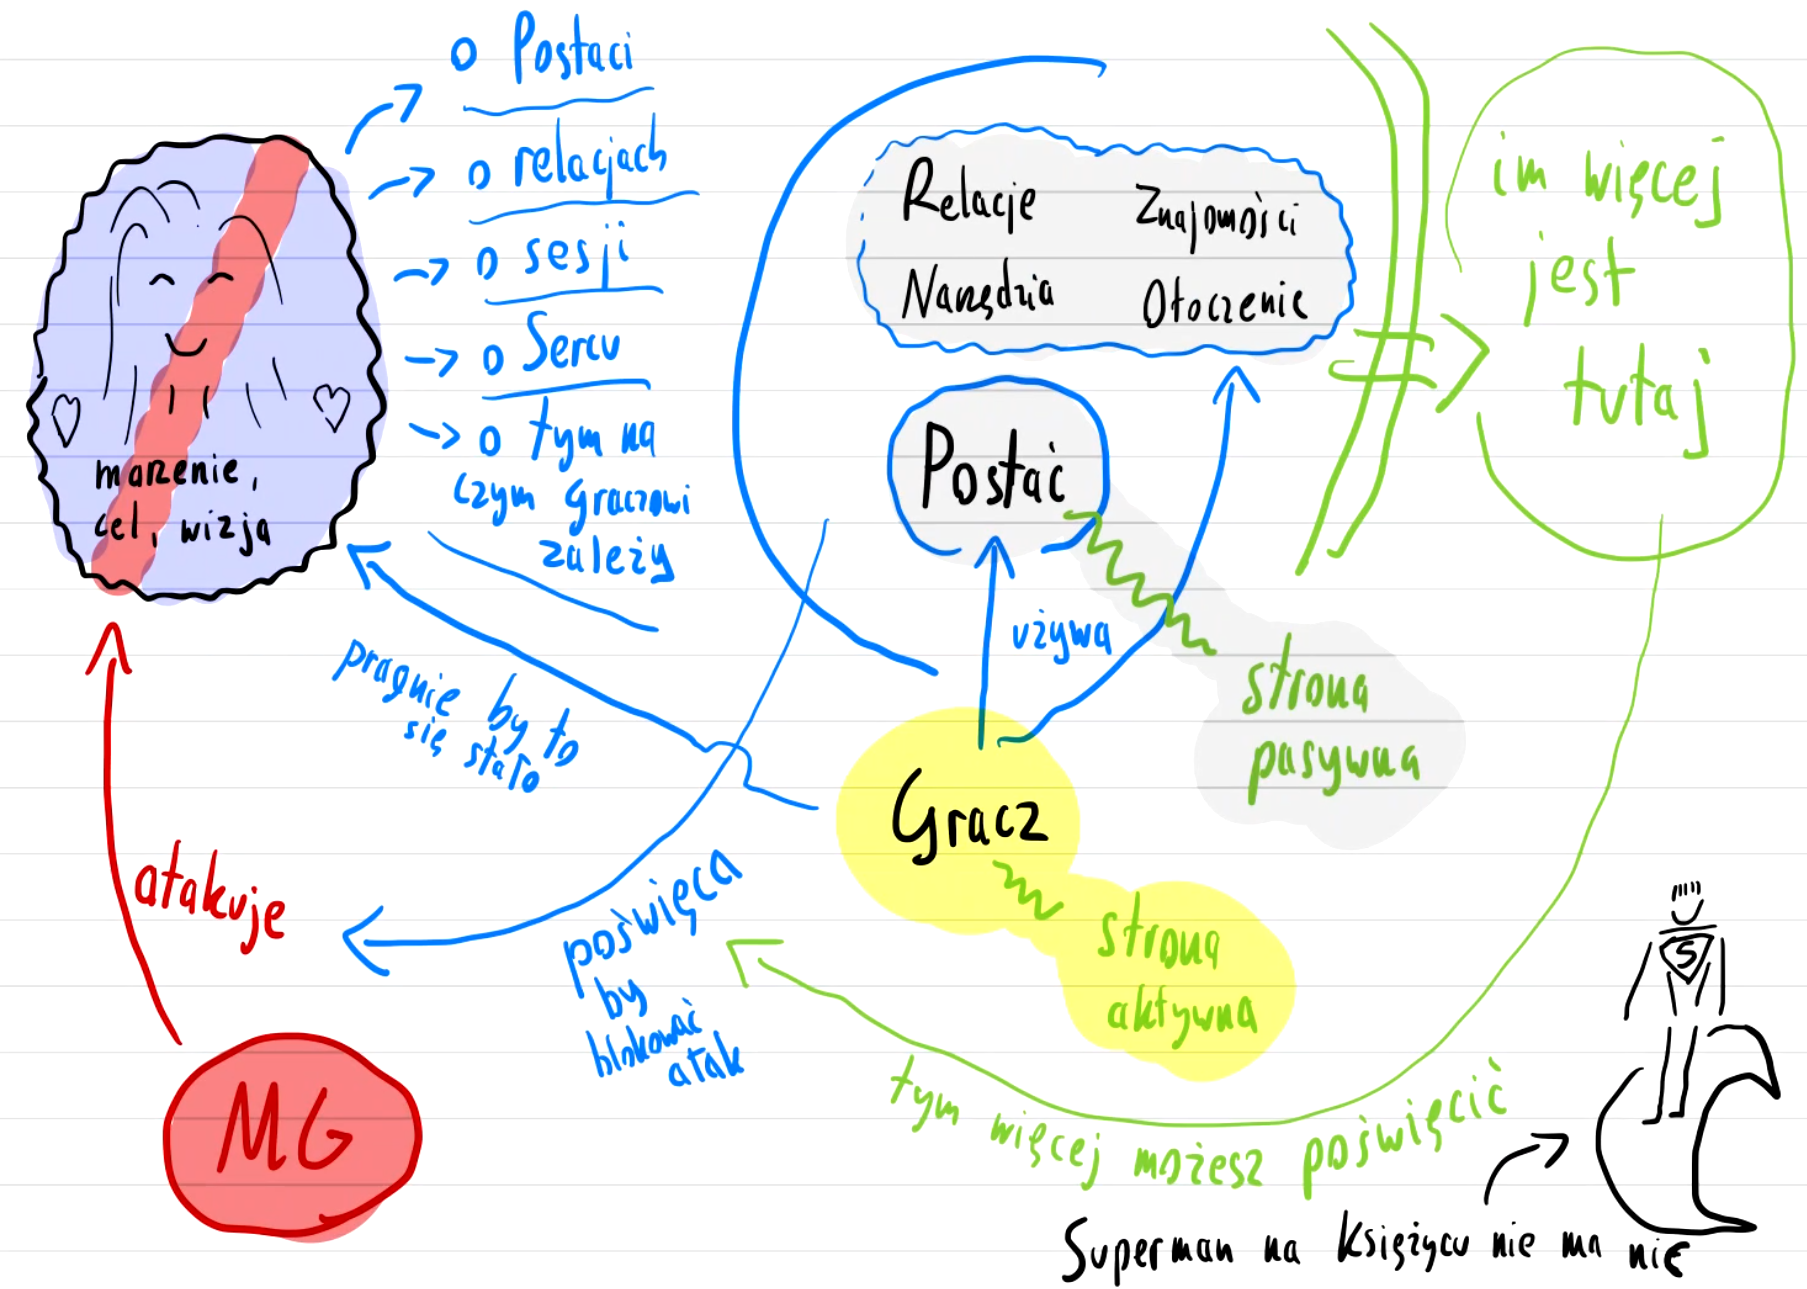 o Postaci
o relacjach
o sesji
o Sercu
o tym na
czym graczowi
zależy
marzenie,
cel, wizja
Relacje
Znajomości
Narzędzia
Otoczenie
im więcej
jest
tutaj
Postać
używa
strona
pasywna
pragnie by to
się stało
Gracz
strona
aktywna
atakuje
poświęca
by
blokować
atak
MG
tym więcej możesz poświęcić
S
Superman na Księżycu nie ma nic